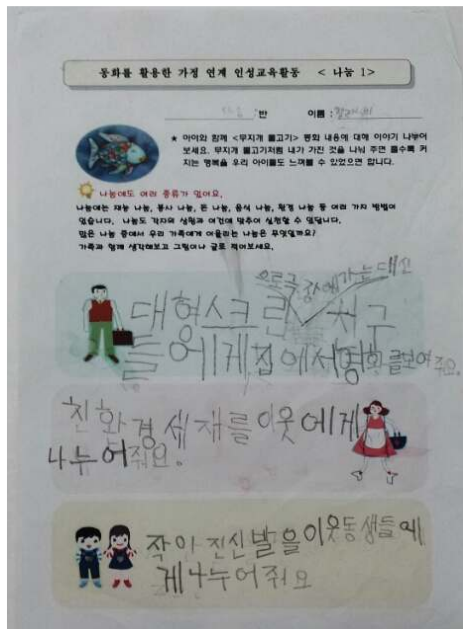 동화를 활용한 가정 연계 인성교육활동 < 나눔 1>
반 이름 :
★ 아이와 함께 <무지개 물고기> 동화 내용에 대해 이야기 나누어
보세요. 무지개 물고기처럼 내가 가진 것을 나눠 주면 줄수록 커
지는 행복을 우리 아이들도 느껴볼 수 있었으면 합니다.
나눔에도 여러 종류가 있어요.
나눔에는 재능 나눔, 봉사 나눔, 돈 나눔, 음식 나눔, 환경 나눔 등 여러 가지 방법이
있습니다. 나눔도 각자의 상황과 여건에 맞추어 실천할 수 있답니다.
많은 나눔 중에서 우리 가족에게 어울리는 나눔은 무엇일까요?
가족과 함께 생각해보고 그림이나 글로 적어보세요.
으로극장에가는대신
대형스크린 친구
들에게집에서영화를보여주요.
친환경세재를이웃에게
나누어줘요.
작아진신발을이웃동생들에
게나누어줘요